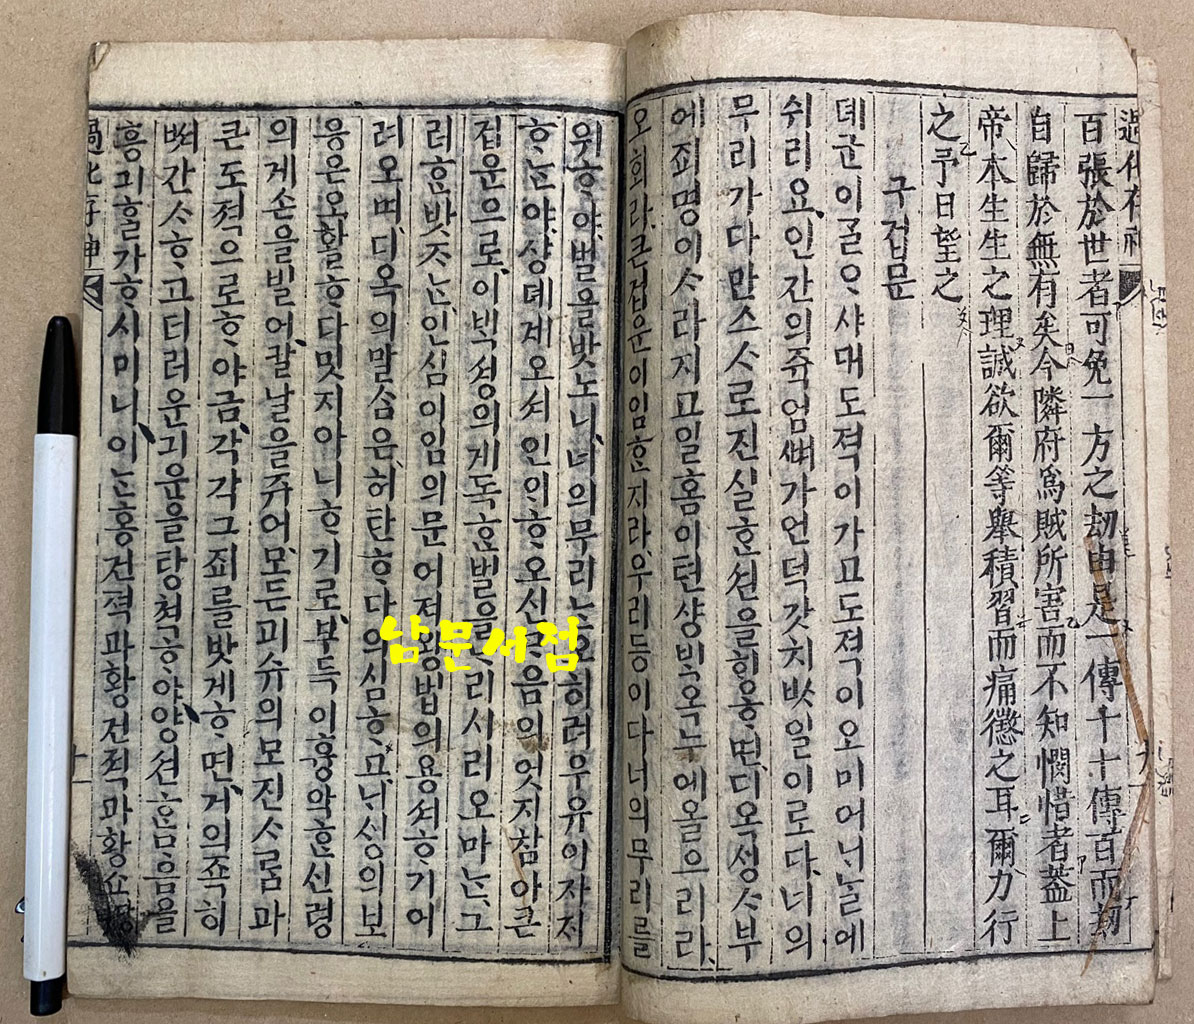 過化存神
百張於世者可免一方之劫由是一傳十十傳百而刼
自歸於無有矣今隣府爲賊所害而不知憫惜者蓋上
帝本生生之理誠欲爾等舉積習而痛懲之耳爾力行
之予日望之
구겁문
뎨군이 ᄀᆞᆯᄋᆞ샤대도젹이가고도젹이오미어ᄂᆞᄂᆞᆯ에
쉬리요인간의쥭엄ᄲᅧ가언덕갓치ᄡᅡ일이로다너의
무리가다만스ᄉᆞ로진실ᄒᆞᆫ션을ᄒᆡᆼᄒᆞ면디옥셩ᄉᆞ부
에죄명이ᄉᆞ라지고일홈이텬샹ᄇᆡᆨ옥누에올으리라
오회라큰겁운이임ᄒᆞᆫ지라우리등이다너의무리를
위ᄒᆞ야벌을밧노니너의무리ᄂᆞᆫ오히려우유이쟈져
ᄒᆞᄂᆞᆫ야샹뎨게오셔인인ᄒᆞ오신ᄆᆞ음의엇지참아큰
겁운으로이ᄇᆡᆨ셩의게독ᄒᆞᆫ벌을ᄂᆞ리시리오마ᄂᆞᆫ그
러ᄒᆞ밧ᄌᆞᄂᆞᆫ인심이임의문어져왕법의용셔ᄒᆞ기어
려오며디옥의말ᄉᆞᆷ은허탄ᄒᆞ다의심ᄒᆞ고ᄂᆡ셩의보
응은오활ᄒᆞ다멋지아니ᄒᆞ기로부득이흉악ᄒᆞᆫ신령
의게손을빌어칼날을쥬어모든미슈의모진ᄉᆞᄅᆞᆷ과
큰도적으로ᄒᆞ야금각각그죄를밧게ᄒᆞ면거의죡히
ᄲᅧ간ᄉᆞᄒᆞ고더러운긔운을탕쳑ᄒᆞ야양션ᄒᆞᆫᄆᆞ음을
흥긔ᄒᆞᆯ가ᄒᆞ시미니이ᄂᆞᆫ홍건적과황건적과황쇼
過化存神
十
남문서점